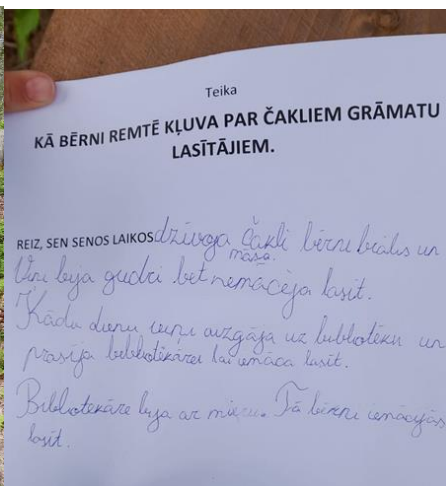 Teika
KĀ BĒRNI REMTĒ KĻUVA PAR ČAKLIEM GRĀMATU
LASĪTĀJIEM.
REIZ, SEN SENOS LAIKOS dzīvoja čakli bērni brālis un
māsa.
Viņi bija gudri bet nemācēja lasīt.
Kādu dienu viņi aizgāja uz bibliotēku un
prasīja bibliotekārei lai iemāca lasīt.
Bibliotekāre bija ar mieru. Tā bērni iemācījās
lasīt.